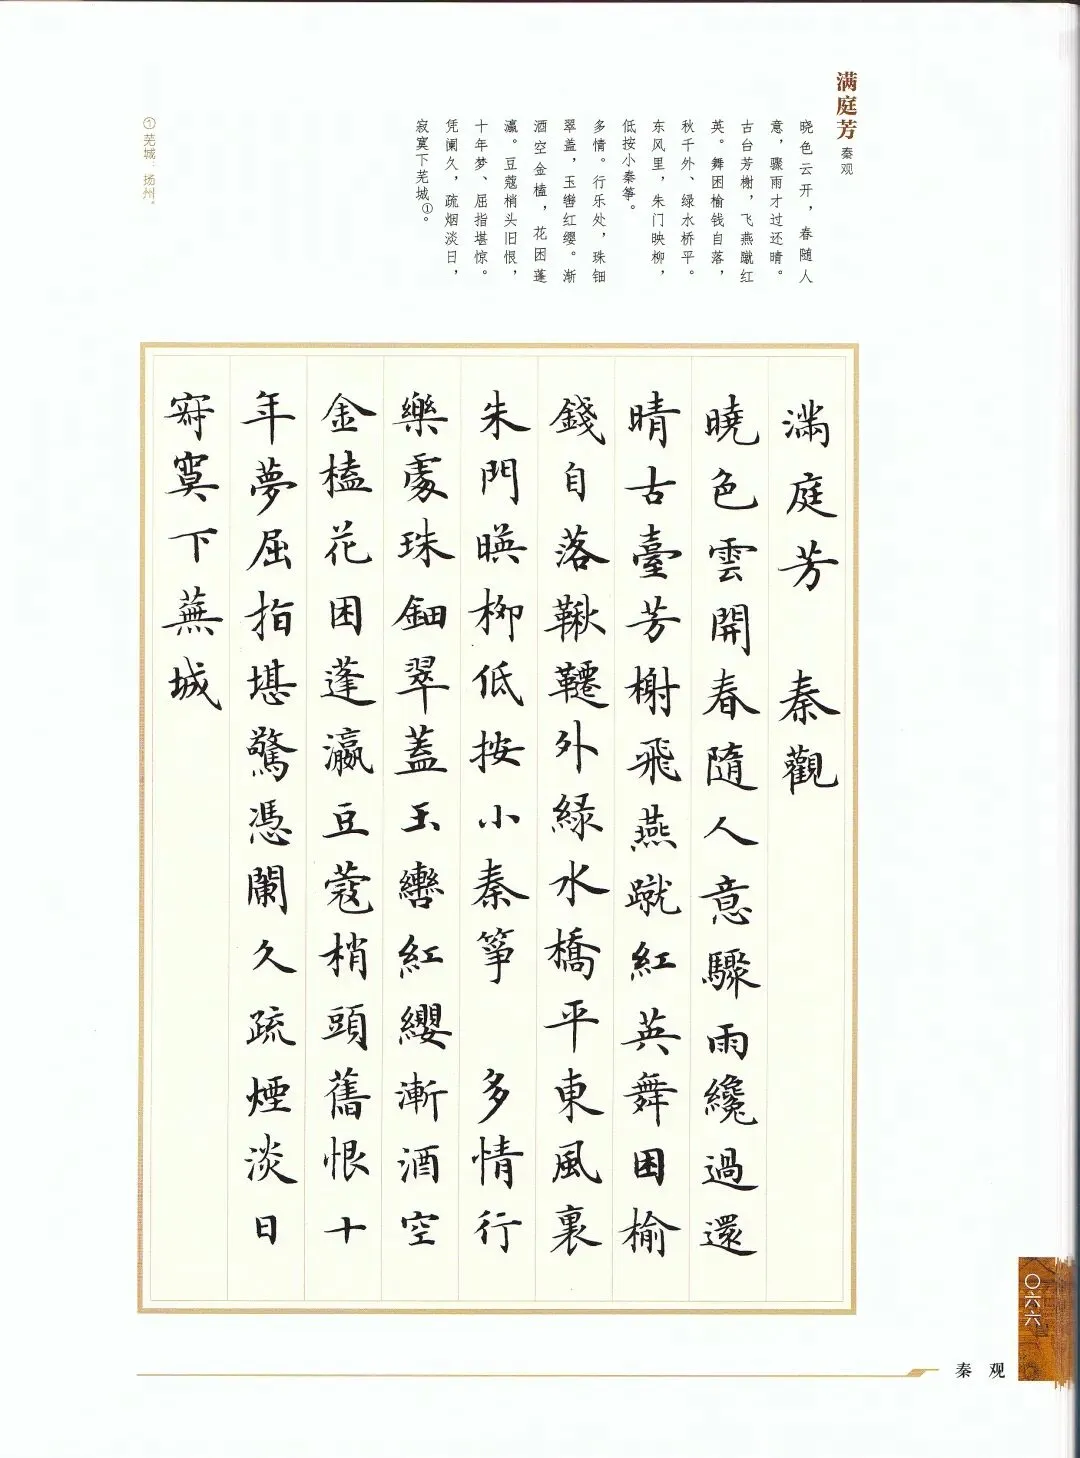 满庭芳 秦观
晓色云开，春随人
意，骤雨才过还晴。
古台芳榭，飞燕蹴红
英。舞困榆钱自落，
秋千外、绿水桥平。
东风里，朱门映柳，
低按小秦筝。
多情。行乐处，珠钿
翠盖，玉辔红缨。渐
酒空金榼，花困蓬
瀛。豆蔻梢头旧恨，
十年梦、屈指堪惊。
凭阑久，疏烟淡日，
寂寞下芜城①。
①芜城：扬州。
滿庭芳 秦觀
曉色雲開春隨人意驟雨纔過還
晴古臺芳榭飛燕蹴紅英舞困榆
錢自落鞦韆外緑水橋平東風裏
朱門暎柳低按小秦筝 多情行
樂處珠鈿翠蓋玉轡紅纓漸酒空
金榼花困蓬瀛豆蔻梢頭舊恨十
年夢屈指堪驚憑闌久疏煙淡日
寂寞下蕪城
秦观
〇六六